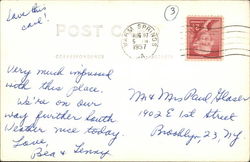 Save this
card!
3
POST C
WARM SPRINGS
AUG 10
5
1957
CORRESPONDENCE
Very much impressed
with this place.
We're on our
way further South
Weather nice today.
Love,
Bea & Lenny
Mr & Mrs Paul Glaser
1402 E 1st Street
Brooklyn 23, N.Y.